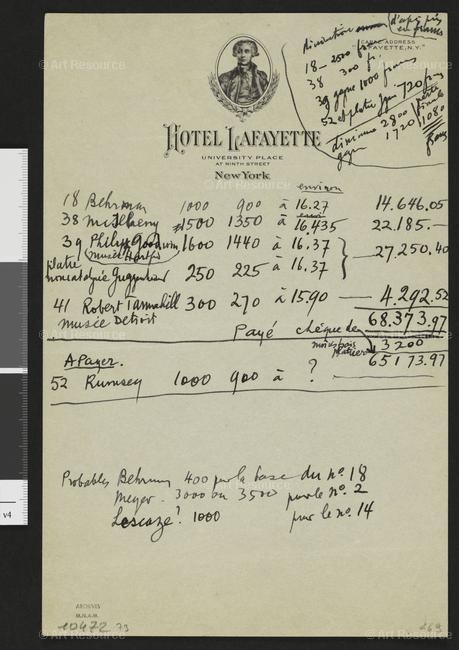 d'après prix
en francs
CABLE ADDRESS
"LAFAYETTE, N.Y."
diminution
18 — 2500 fr.
38 300 fr.
39 gagne 1000 francs
52 et platre 720 frs
diminue 2800
gagne 1720 / 1080
francs
HOTEL LAFAYETTE
UNIVERSITY PLACE
AT NINTH STREET
NEW YORK
environ
18 Behrman 1000 900 à 16.27 14.646.05
38 McIlhenny 1500 1350 à 16.435 22.185.—
39 Philip Goodwin 1600 1440 à 16.37
(Musée Hartf) 27,250.40
platre
Guggenheim 250 225 à 16.37
41 Robert Tannahill 300 270 à 15.90 — 4.292.52
Musée Detroit 68.373.97
Payé chèque de
moins frais 3200
65173.97
A Payer.
52 Rumsey 1000 900 à ?
Probables Behrman 400 pour la base du nº 18
Meyer. 3000 ou 3500 pour le nº 2
Lescaze? 1000 pour le nº 14
ARCHIVES
M.N.A.M.
10472 73
469
v4
© Art Resource